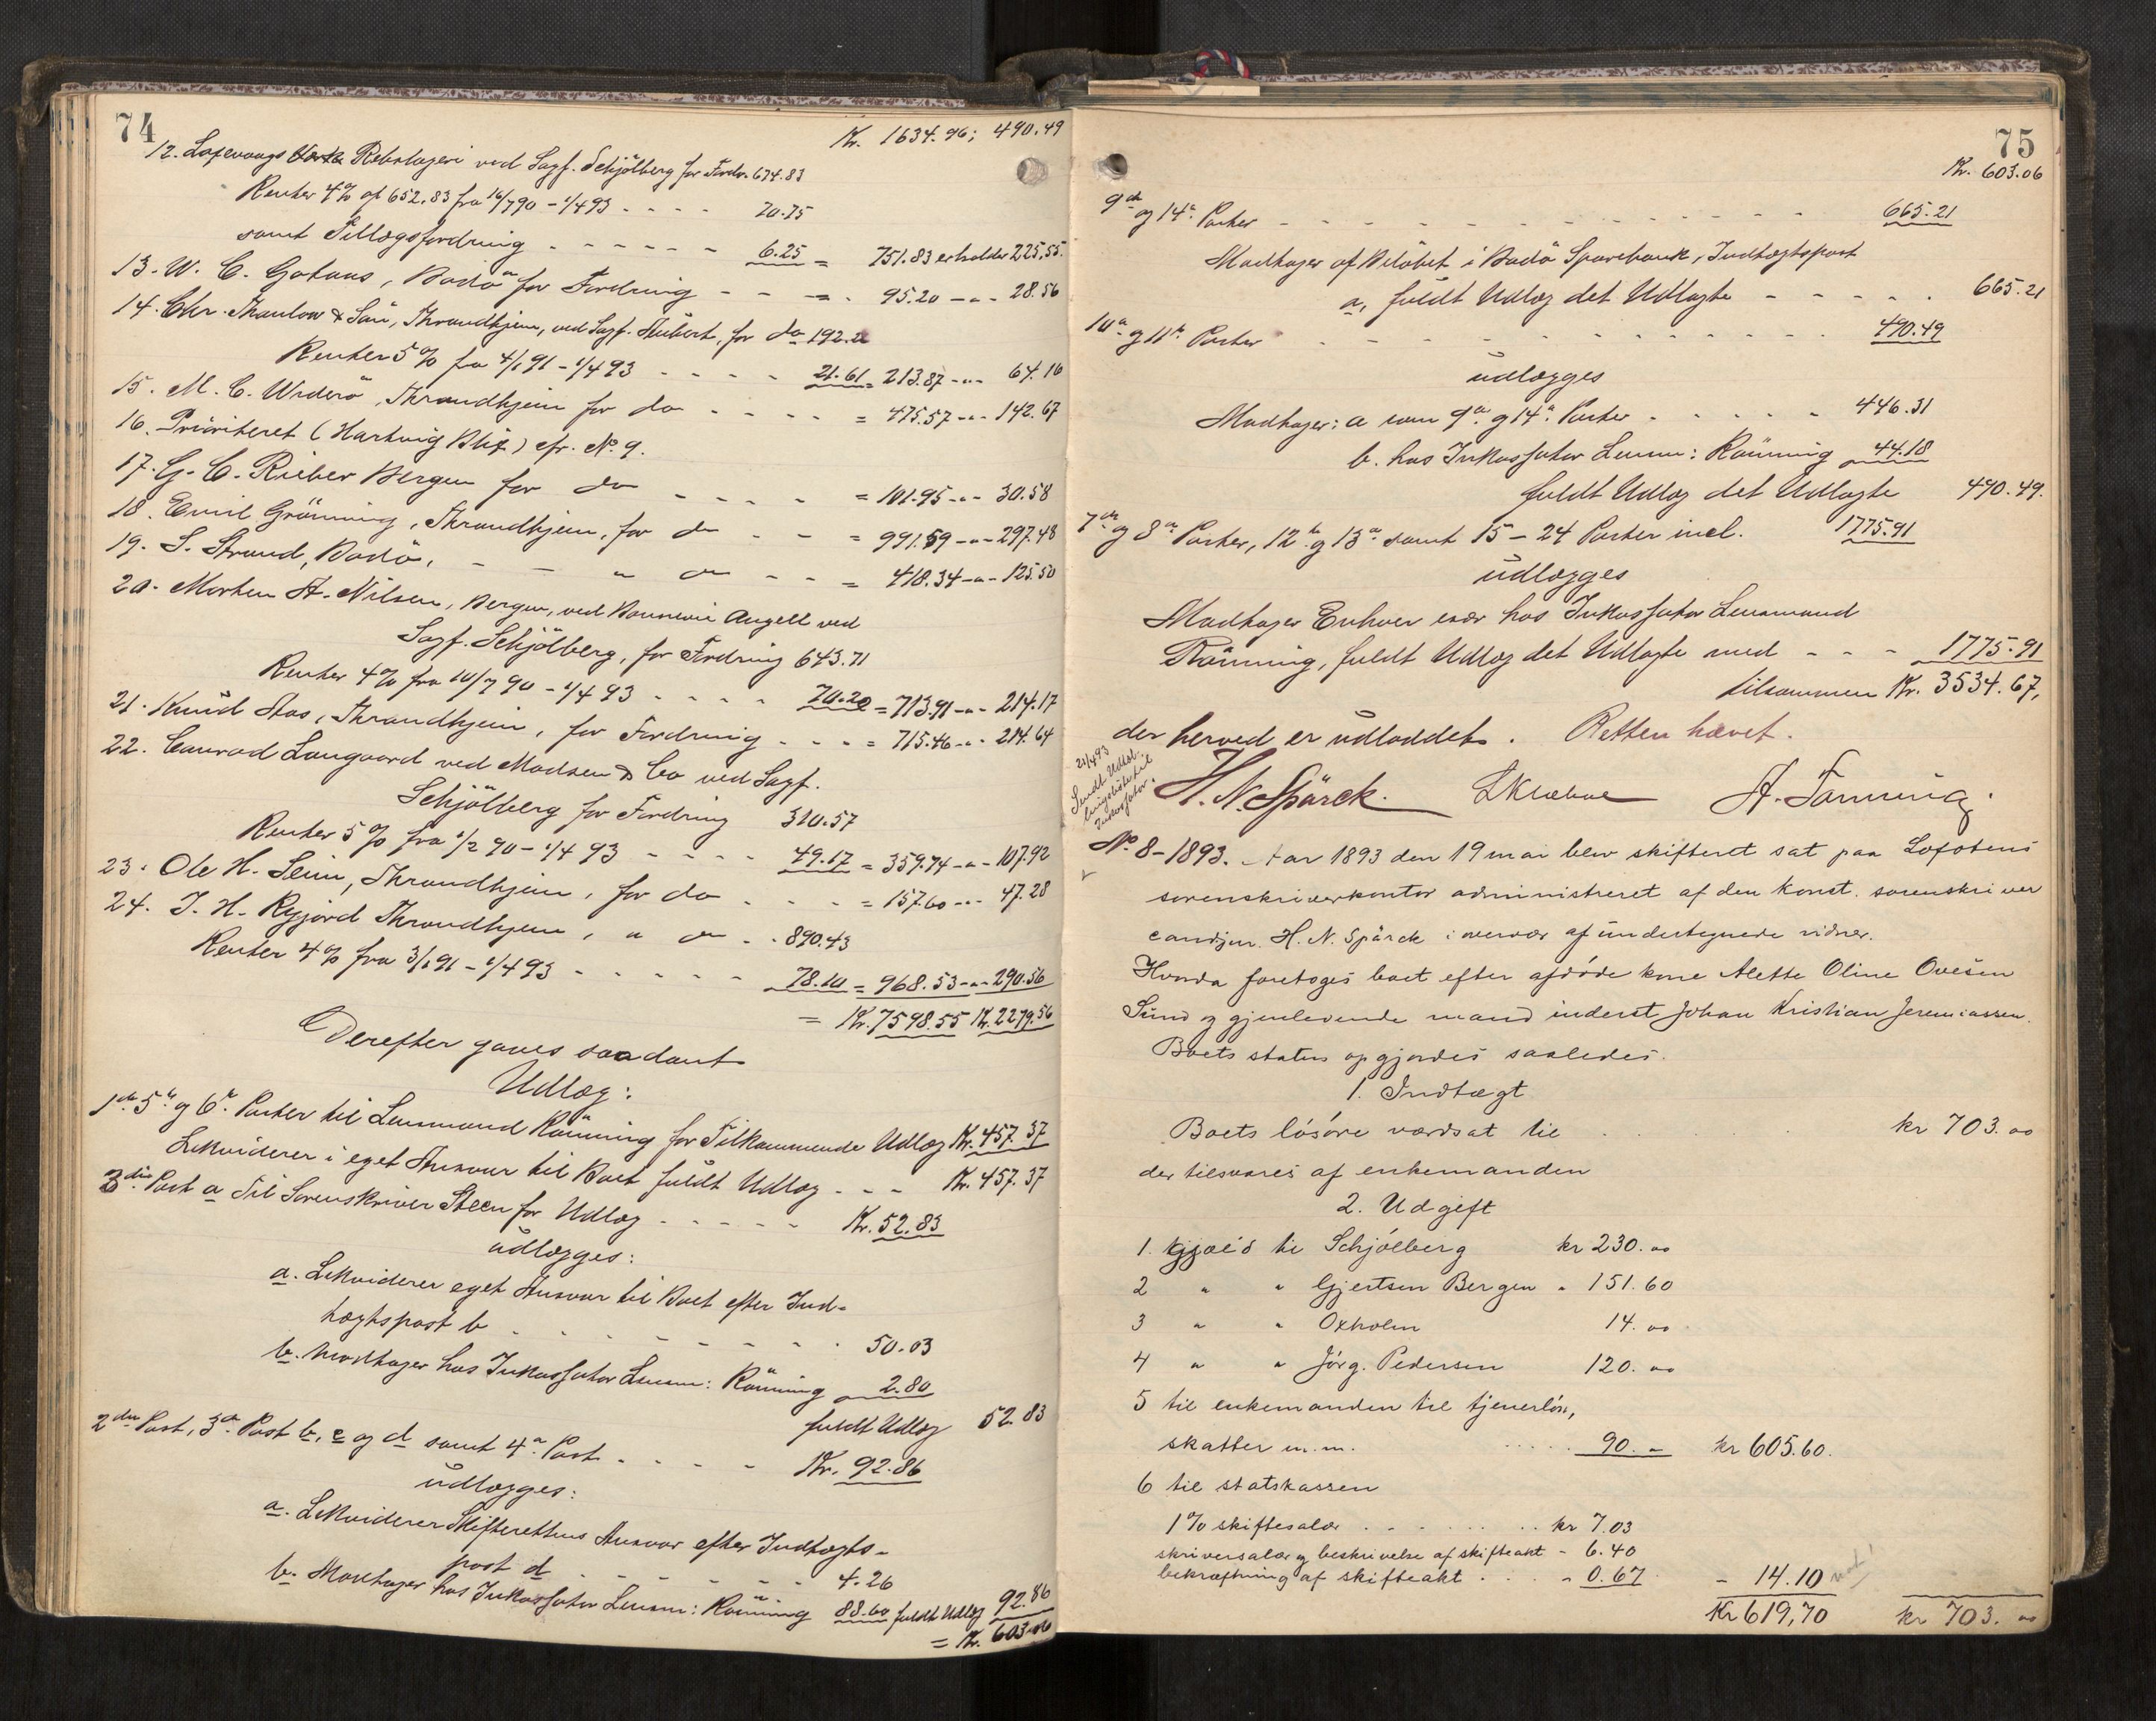 74
Kr. 1634.96; 490.49
12. Laxevaags Rebslageri ved Sagf. Schjölberg for Fordr. 674.83
Renter 4% af 652.83 fra 16/7 90 - 1/4 93 - - - - 70.75
samt Tillægsfordring - - - - - - 6.25 = 751.83 erholder 225.55.
13. W. C. Gotaas, Bodö for Fordring - - = . 95.20 -"- 28.56
14. Chr. Thaulow & Sön, Throndhjem, ved Sagf. Hubert, for do 192.26
Renter 5% fra 4/1 91 - 1/4 93 - - - - 21.61 = 213.87 -"- 64.16
15. M. C. Widerö, Throndhjem for do - - - - = 475.57 -"- 142.67
16. Prioriteret (Hartvig Blix) cfr. No. 9.
17. G. C. Rieber Bergen for do - - - - = 101.95 -"- 30.58
18. Emil Grönning, Throndhjem, for do - - = 991.59 -"- 297.48
19. S. Strand, Bodö, - - " do - - = 418.34 -"- 125.50
20. Morten A. Nilsen, Bergen, ved Bonnevie Angell ved
Sagf. Schjölberg, for Fordring 643.71
Renter 4% fra 10/7 90 - 1/4 93 - - - - 70.20 = 713.91 -"- 214.17
21. Knud Aas, Throndhjem, for Fordring - - - = 715.46 -"- 214.64
22. Conrad Langaard ved Madsen & Co ved Sagf.
Schjölberg for Fordring 310.57
Renter 5% fra 1/2 90 - 1/4 93 - - - - 49.17 = 359.74 -"- 107.92
23. Ole H. Sein, Throndhjem, for do - - - = 157.60 -"- 47.28
24. J. H. Rygjord Throndhjem, " do - . 890.43
Renter 4% fra 3/1 91 - 1/4 93 - - - - - 78.10 = 968.53 -"- 290.56
= Kr. 7598.55 Kr. 2279.56
Derefter gaves saadant
Udlæg:
1ste 5te og 6te Poster til Lensmand Rönning for Tilkommende Udlæg Kr. 457.37
Likviderer i eget Ansvar til Boet fuldt Udlæg - - - Kr. 457.37
3die Post a Til Sorenskriver Steen for Udlæg - - - - - Kr. 52.83
udlægges:
a. Likviderer eget Ansvar til Boet efter Ind-
tægtspost b - - - - - - - - 50.03
b. Modtager hos Inkassator Lensm: Rönning 2.80
fuldt Udlæg 52.83
2den Post, 3die Post b, c og d samt 4de Post - - - - Kr. 92.86
udlægges:
a. Likviderer Skifterettens Ansvar efter Indtægts-
post d - - - - - - 4.26
b. Modtager hos Inkassator Lensm: Rönning 88.60 fuldt Udlæg 92.86
= Kr. 603.06
75
Kr. 603.06
9de og 14de Poster - - - - - - - - - - 665.21
Modtager af Belöbet i Bodö Sparebank, Indtægtspost
a, fuldt Udlæg det Udlagte - - - - - 665.21
10de og 11te Poster - - - - - - - - - 490.49
udlægges
Modtager: a som 9de og 14de Poster - - - - - 446.31
b. hos Inkassator Lensm: Rönning 44.18
fuldt Udlæg det Udlagte 490.49.
7de og 8de Poster, 12te og 13de samt 15 - 24 Poster incl. 1775.91
udlægges
Modtager Enhver især hos Inkassator Lensmand
Rönning, fuldt Udlæg det Udlagte med - - - 1775.91
tilsammen Kr. 3534.67,
der herved er udloddet. Retten hævet.
21/4 93
Sendt Udlod-
ningsliste til
Inkassator.
H. N. Spärck. A. Fanning.
No. 8 - 1893. Aar 1893 den 19 mai blev skifteret sat paa Lofotens
sorenskriverkontor administreret af den konst. sorenskriver
cand jur. H. N. Spärck i overvær af undertegnede vidner.
Hvorda foretoges boet efter afdöde kone Alette Oline Ovesen
Sund og gjenlevende mand inderst Johan Kristian Jeremiassen.
Boets status opgjordes saaledes.
1. Indtægt
Boets lösöre værdsat til . . . kr 703.00
der tilsvares af enkemanden
2. Udgift
1. gjæld til Schjölberg kr 230.00
2 " " Gjertsen Bergen " 151.60
3 " " Oxholm 14.00
4 " " Jörg. Pedersen 120.00
5 til enkemanden til tjenerlön,
skatter m.m. . . . . . 90.- kr 605.60.
6 til statskassen
1% skiftesalær . . . . . . . . kr 7.03
skriversalær og beskrivelse af skifteakt - 6.40
bekræftning af skifteakt . . . - 0.67 - 14.10
Kr 619,70 kr 703.00